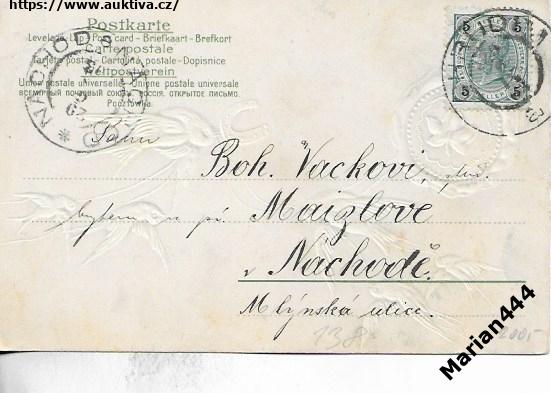 https://www.auktiva.cz/
Postkarte
Levelező-Lap - Post card - Briefkaart - Brefkort
Carte postale
Tarjeta postale - Cartolina postale - Dopisnice
Weltpostverein
Union postale universelle - Unione postale universale
ВСЕМІРНЫЙ ПОЧТОВЫЙ СОЮЗ. РОССІЯ. ОТКРЫТОЕ ПИСЬМО.
Pocztówka
NÁCHOD
5 5
5 5
HELLER
Pánu
Boh. Vackovi, stud.
bytem u pí. Maizlové
v Náchodě.
Mlýnská ulice.
138
2005
Marian444